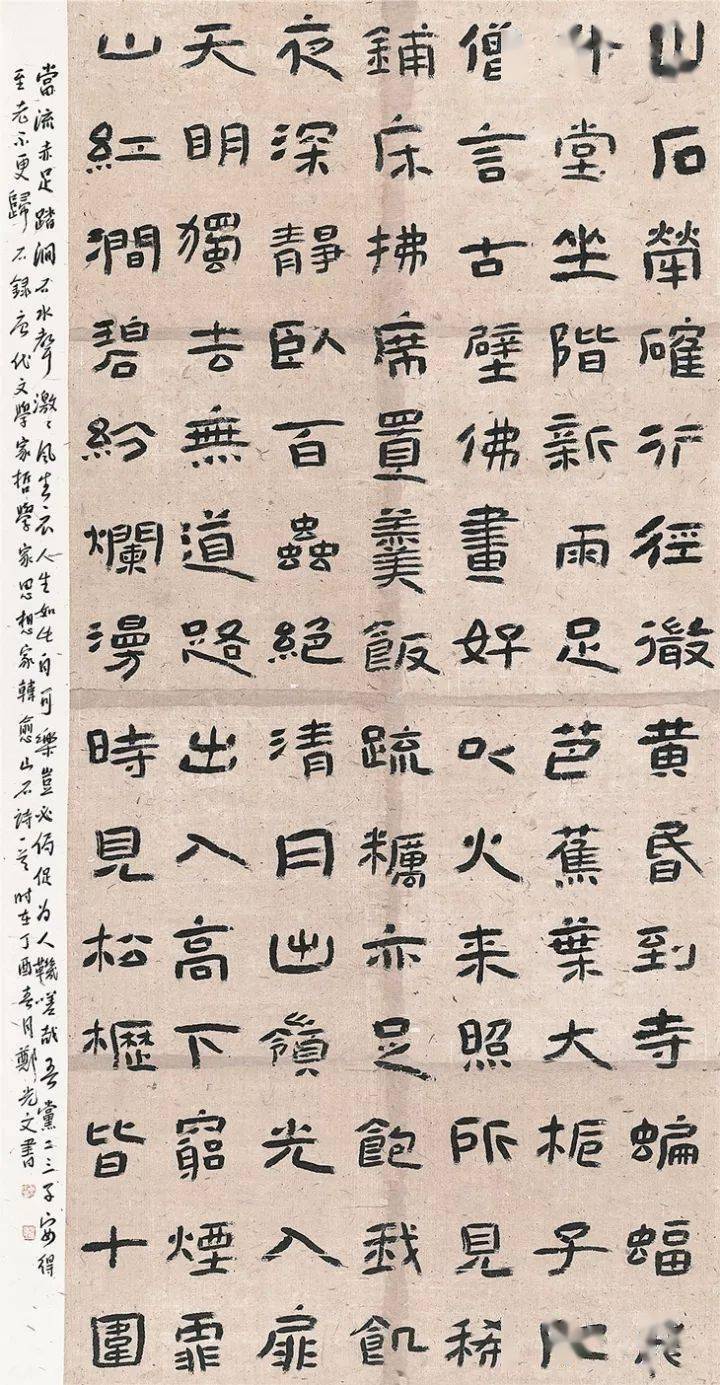 山石犖確行徑微黃昏到寺蝙蝠
堂坐階新雨足芭蕉葉大梔子肥
僧言古壁佛畫好以火来照所見稀
鋪床拂席置羹飯疏糲亦足飽我飢
夜深靜臥百蟲絕清月出嶺光入扉
天明獨去無道路出入高下窮煙霏
山紅澗碧紛爛漫時見松櫪皆十圍
當流赤足踏澗石水聲激〻風生衣人生如此自可樂豈必侷促為人鞿嗟哉吾黨二三子安得
至老不更歸 右錄唐代文學家哲學家思想家韓愈山石詩一首時在丁酉春月鄭光文書